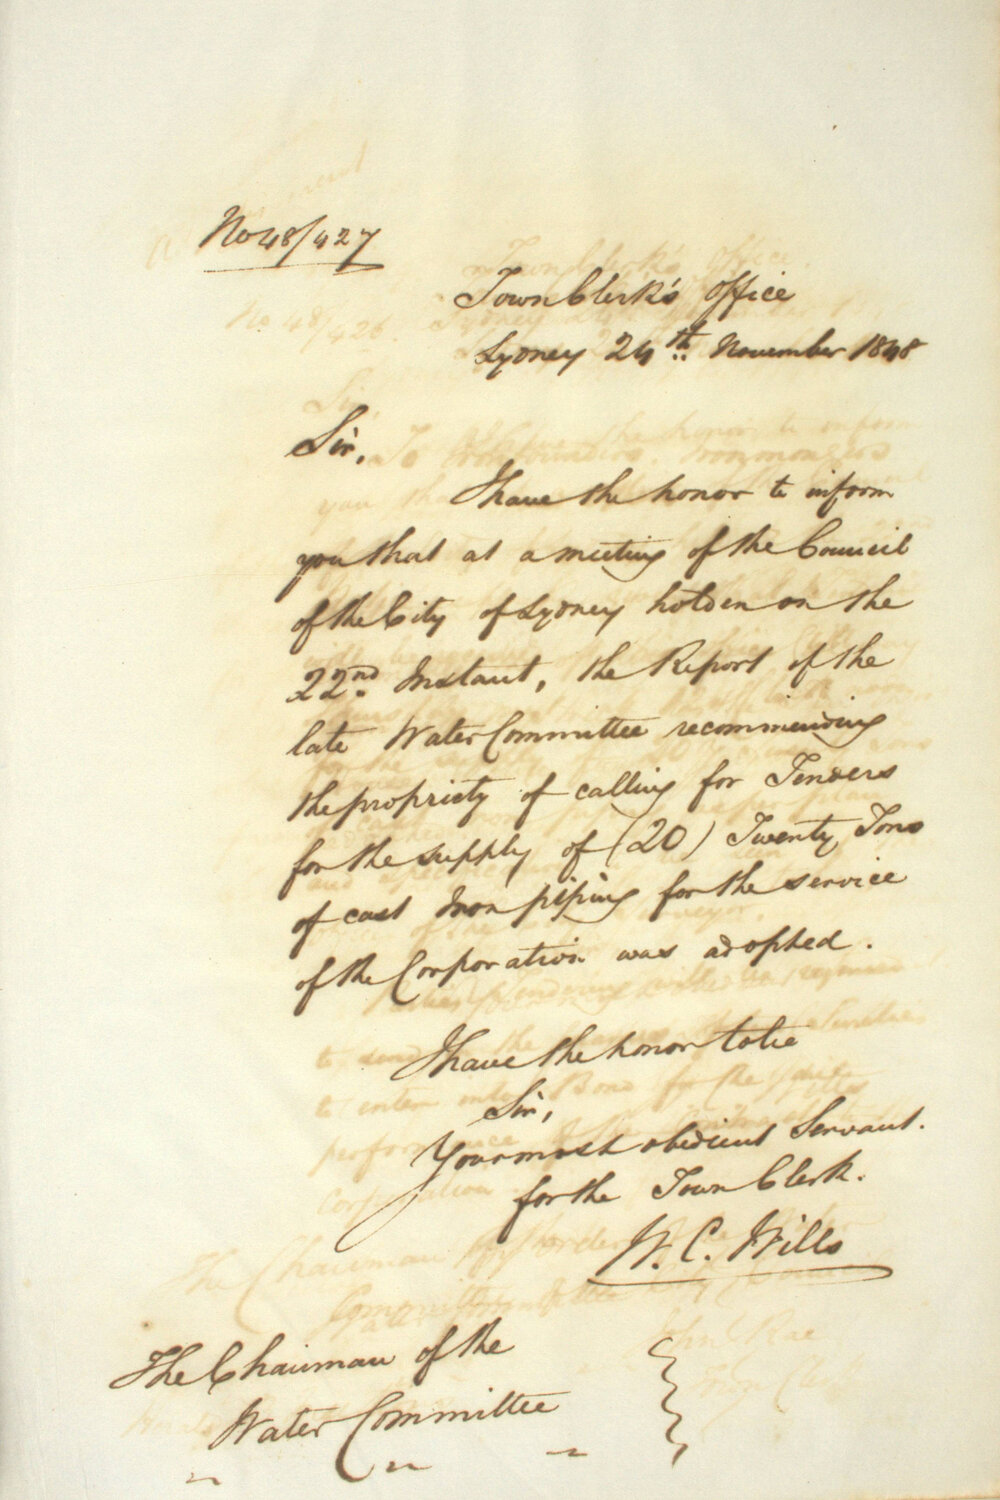 No 48/427
Town Clerk's Office
Sydney 24th November 1848
Sir,
I have the honor to inform
you that at a meeting of the Council
of the City of Sydney holden on the
22nd Instant, the Report of the
late Water Committee recommending
the propriety of calling for Tenders
for the supply of (20) Twenty Tons
of cast Iron piping for the service
of the Corporation was adopted.
I have the honor to be
Sir,
Your most obedient Servant.
for the Town Clerk.
W. C. Wills
The Chairman of the
Water Committee